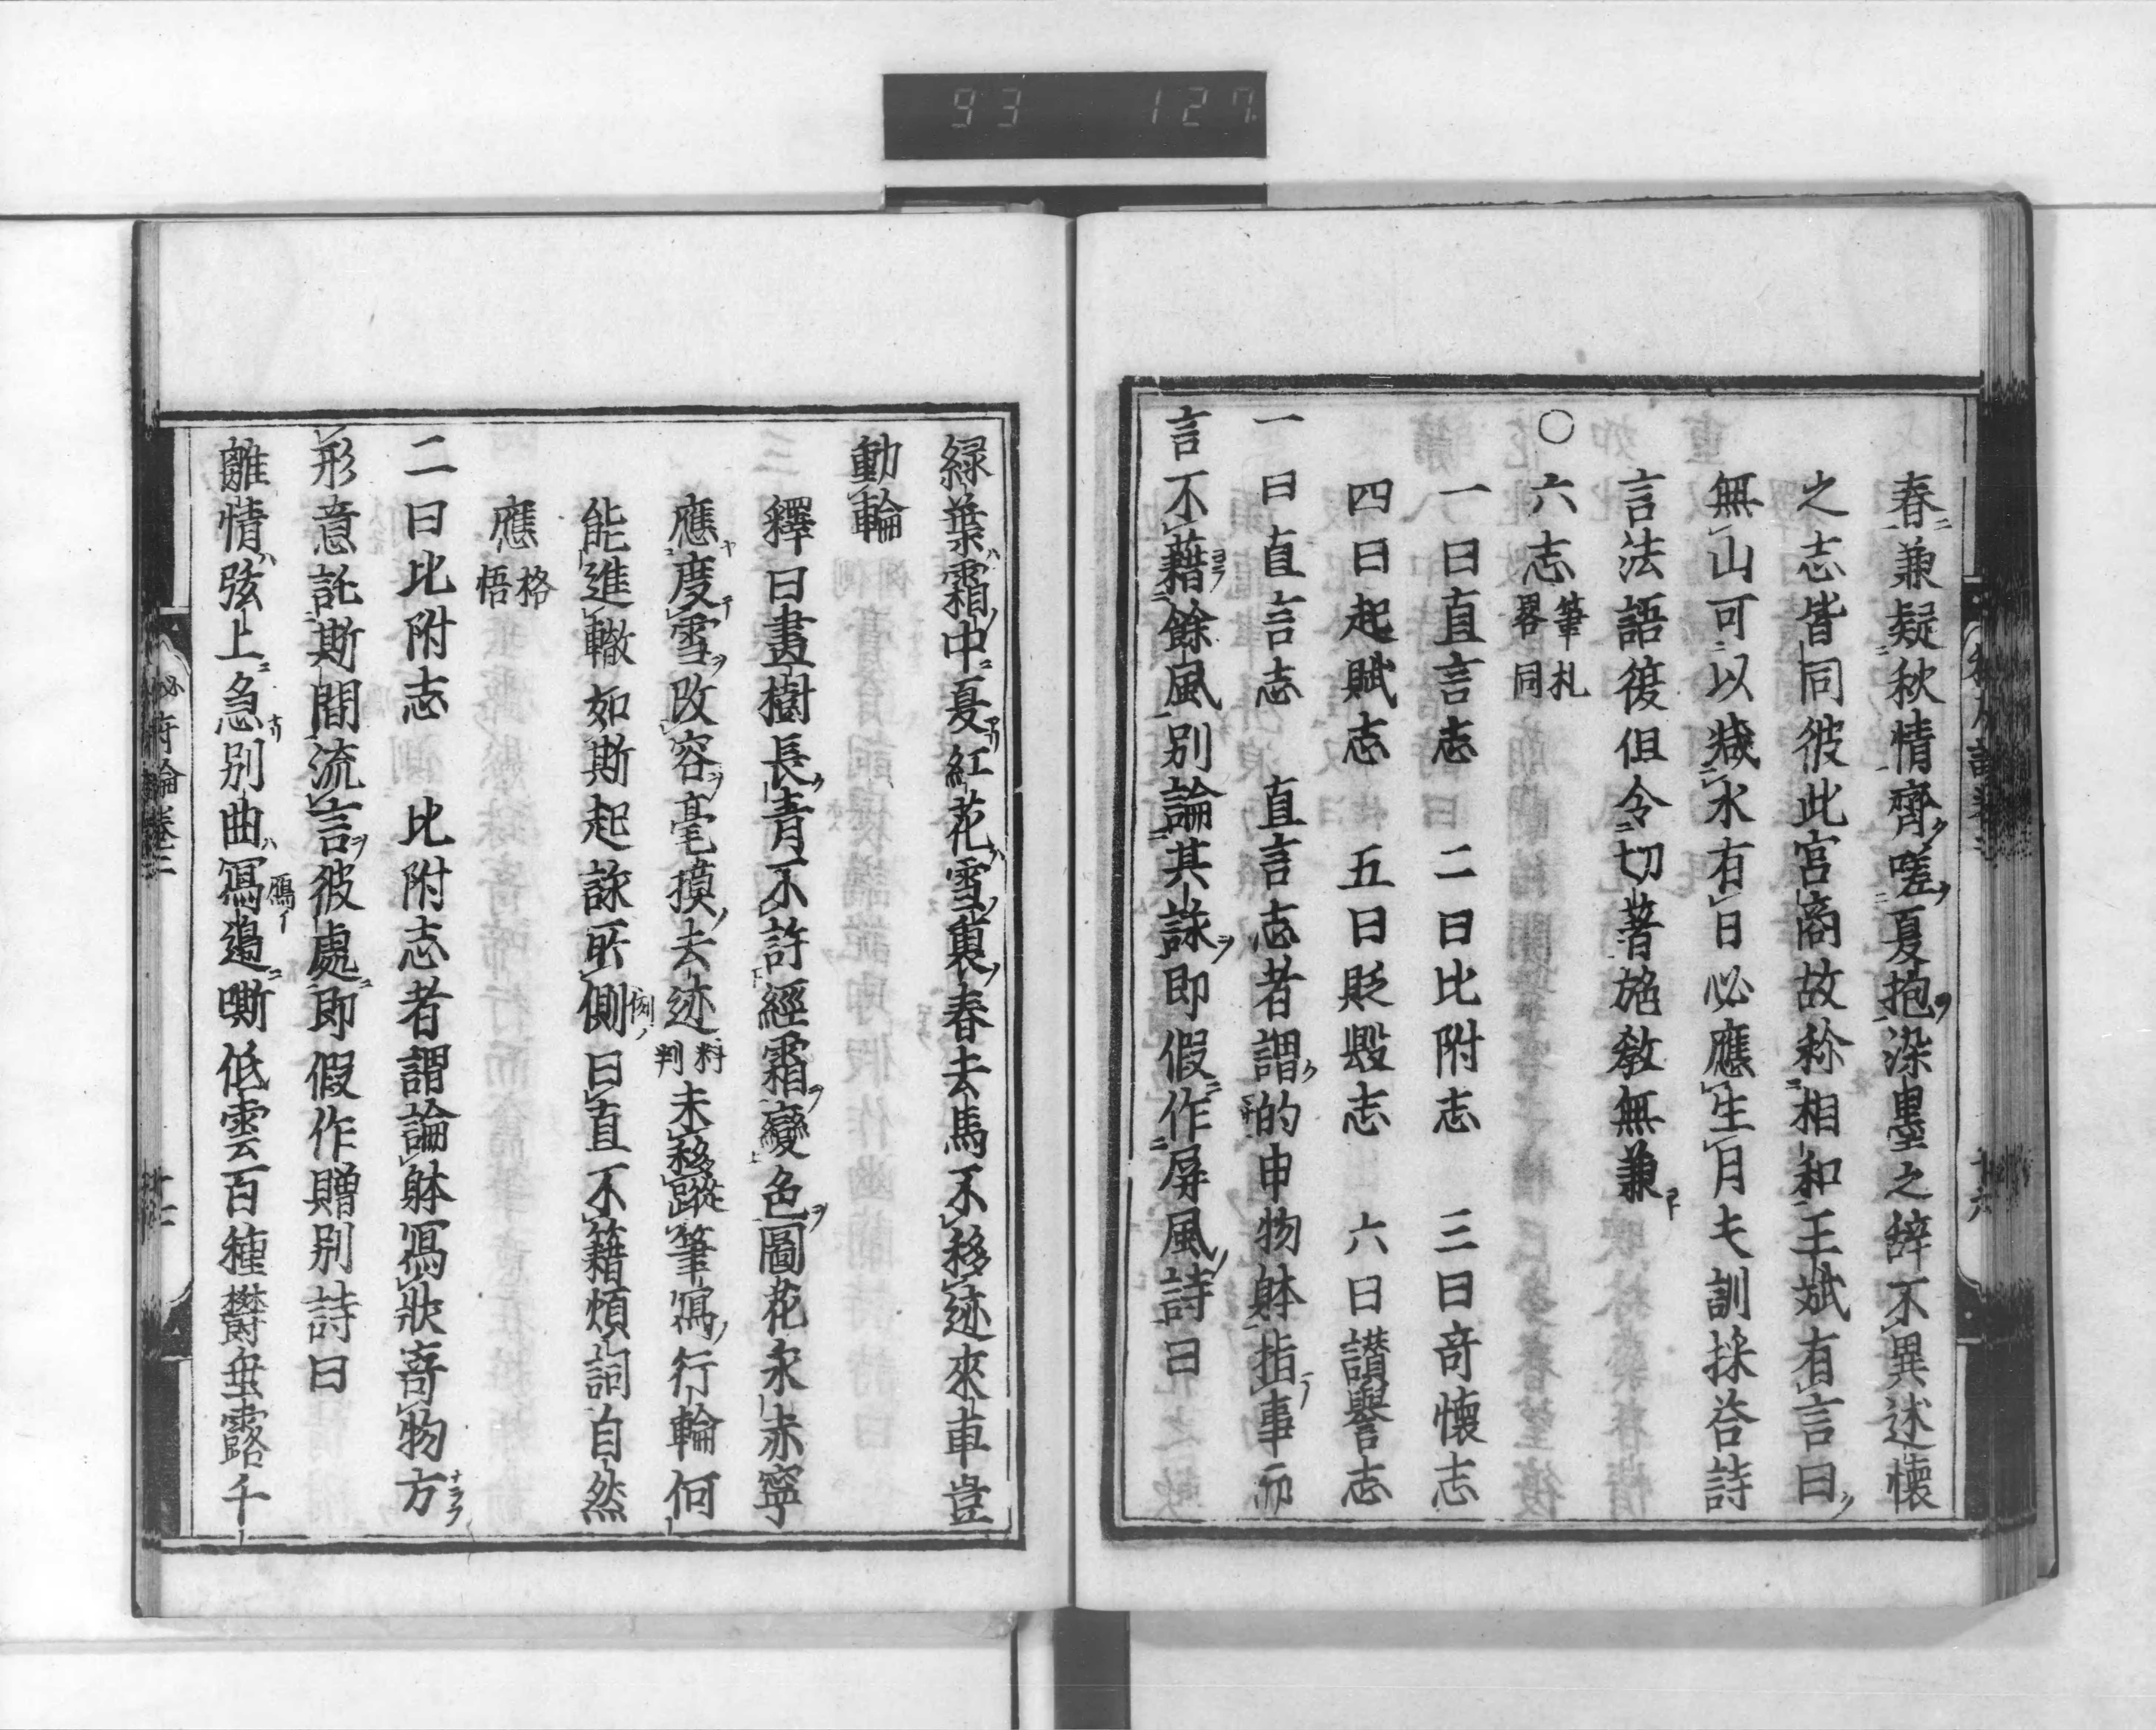 93 127
春兼疑秋情齊嗟夏抱染墨之辞不異述懷
之志皆同彼此宮商故称相和王斌有言曰
無山可以減水有日必應生月夫訓採荅詩
言法語復但令切著施教無兼
〇六志筆札畧同
一曰直言志 二曰比附志 三曰竒懷志
四曰起賦志 五曰貶毀志 六曰讃譽志
一曰直言志 直言志者謂的申物躰指事而
言不藉餘風別論其詠即假作屏風詩曰
緑葉霜中夏紅花雪裏春去馬不移迹來車豈
動輪
釋曰畫樹長青不許經霜變色圖花永赤寧
應度雪改容毫摸去迹料判未移蹤筆寫行輪何
能進轍如斯起詠所側曰直不籍煩詞自然
應格悟
二曰比附志 比附志者謂論躰寫狀寄物方
形意託斯間流言彼處即假作贈別詩曰
離情弦上急別曲寫邉嘶低雲百種欝垂露千
秘府論卷三